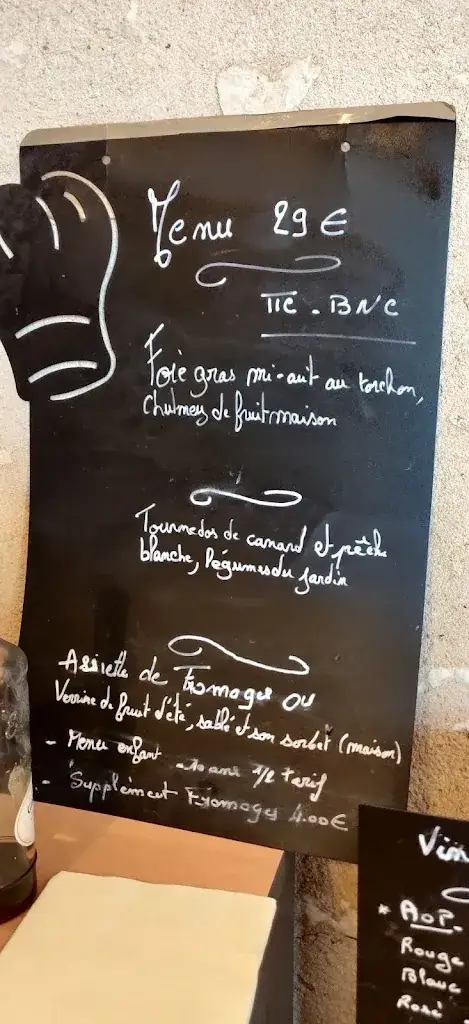 Menu 29 €
TTC - BNC
Foie gras mi-cuit au torchon,
chutney de fruit maison
Tournedos de canard et pêche
blanche, légumes du jardin
Assiette de Fromages ou
Verrine de fruit d'été, sablé et son sorbet (maison)
- Menu enfant -10 ans 1/2 tarif
- Supplément Fromages 4.00€
Vin
* AOP
Rouge
Blanc
Rosé